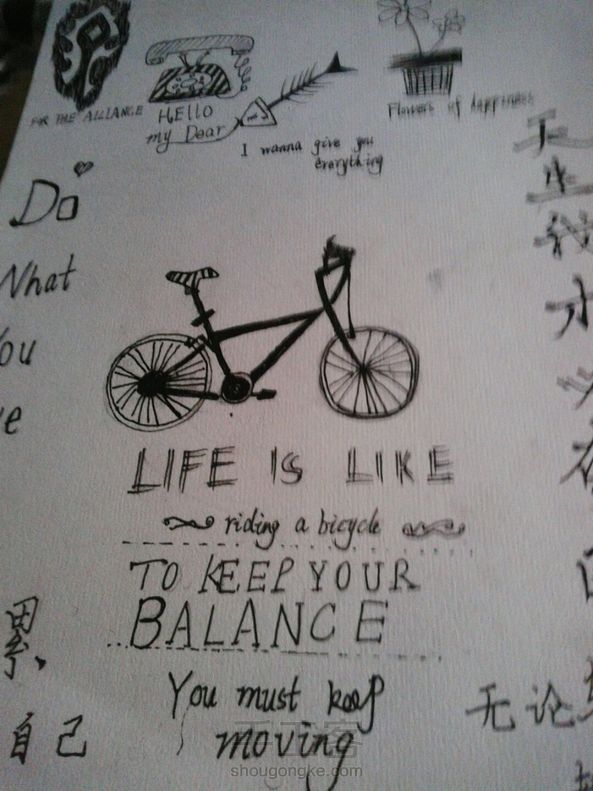 FOR THE ALLIANCE
HELLO
my Dear
I wanna give you
everything
Flowers of happiness
Do
What
You
天
生
我
才
LIFE IS LIKE
riding a bicycle
TO KEEP YOUR
BALANCE
You must keep
moving
累
自己
无论
shougongke.com